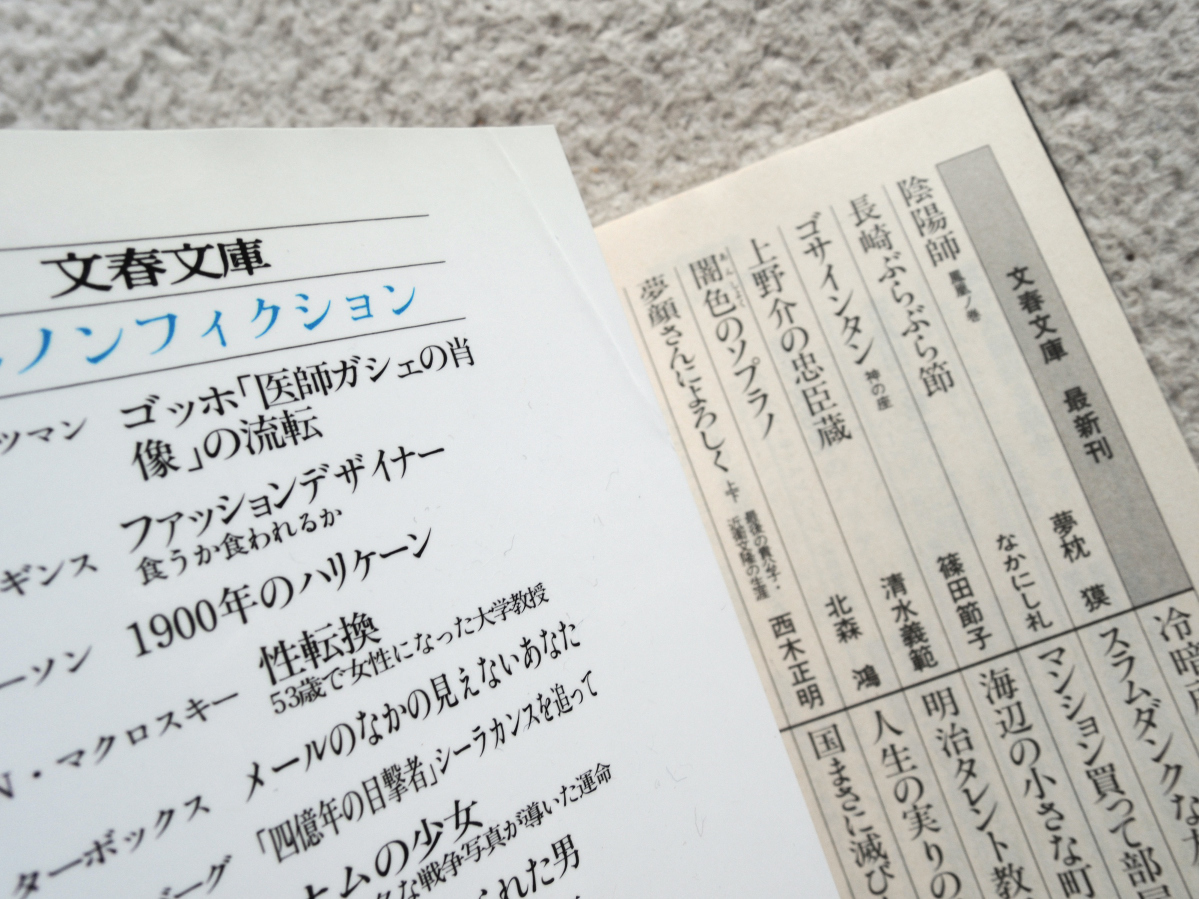 文春文庫
ノンフィクション
ツマン ゴッホ「医師ガシェの肖
像」の流転
ギンス ファッションデザイナー
食うか食われるか
ーソン 1900年のハリケーン
N・マクロスキー 性転換
53歳で女性になった大学教授
ターボックス メールのなかの見えないあなた
バーグ 「四億年の目撃者」シーラカンスを追って
ナムの少女
な戦争写真が導いた運命
れた男
文春文庫 最新刊
陰陽師 鳳凰ノ巻 夢枕 獏
長崎ぶらぶら節 なかにし礼
ゴサインタン 神の座 篠田節子
上野介の忠臣蔵 清水義範
闇色のソプラノ 北森 鴻
あんしょく
夢顔さんによろしく 上下 最後の貴公子・近衛文隆の生涯 西木正明
冷暗
スラムダンクな
マンション買って部屋
海辺の小さな町
明治タレント教
人生の実りの
国まさに滅び